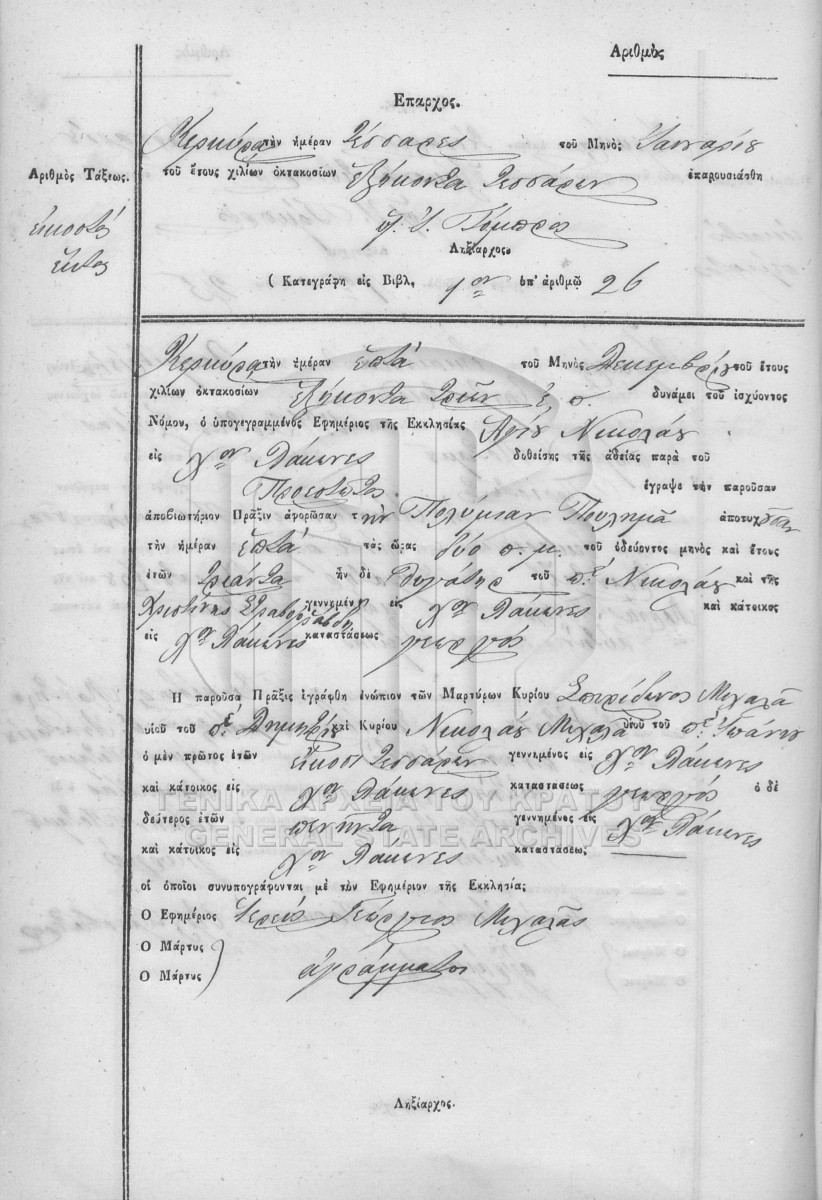 Αριθμὸς
Επαρχος.
Κερκύρα τὴν ἡμέραν τέσσαρες τοῦ Μηνὸς Ἰανναρίου
Αριθμὸς Τάξεως.
τοῦ ἔτους χιλίων ὀκτακοσίων ἑξήκοντα τεσσάρων ἐπαρουσιάσθη
εἰκοστὸς
ἕκτος
Ληξίαρχος.
(Κατεγράφη εἰς Βιβλ, 1ον ὑπ' ἀριθμῷ 26
Κερκύρα τὴν ἡμέραν ἑπτά τοῦ Μηνὸς Δεκεμβρίου τοῦ ἔτους
χιλίων ὀκτακοσίων ἑξήκοντα τριῶν ἐ. π. δυνάμει τοῦ ἰσχύοντος
Νόμου, ὁ ὑπογεγραμμένος Ἐφημέριος τῆς Εκκλησίας Αγίου Νικολάου
εἰς χον Λάκωνες δοθείσης τῆς ἀδείας παρὰ τοῦ
Προεστῶτος ἔγραψε τὴν παροῦσαν
ἀποβιωτήριον Πρᾶξιν ἀφορῶσαν τὴν Πολύμιαν Πουλημᾶ ἀποτυχοῦσαν
τὴν ἡμέραν ἑπτά τὰς ὥρας δύο π. μ. τοῦ ὁδεύοντος μηνὸς καὶ ἔτους
ἐτῶν τριάντα ἦν δὲ θυγάτηρ τοῦ πτὲ Νικολάου καὶ τῆς
Χριστίνης γεννημένη εἰς χον Λάκωνες καὶ κάτοικος
εἰς χον Λάκωνες καταστάσεως γεωργός
Η παροῦσα Πρᾶξις ἐγράφθη ἐνώπιον τῶν Μαρτύρων Κυρίου Σπυρίδωνος Μιχαλᾶ
υἱοῦ τοῦ πτὲ Δημητρίου καὶ Κυρίου Νικολάου Μιχαλᾶ υἱοῦ τοῦ πτὲ Ἰωάννου
ὁ μὲν πρῶτος ἐτῶν εἴκοσι τεσσάρων γεννημένος εἰς χον Λάκωνες
καὶ κάτοικος εἰς χον Λάκωνες καταστάσεως γεωργός ὁ δὲ
δεύτερος ἐτῶν πενῆντα γεννημένος εἰς χον Λάκωνες
καὶ κάτοικος εἰς χον Λάκωνες καταστάσεως;
οἱ ὁποῖοι συνυπογράφονται μὲ τὸν Εφημέριον τῆς Εκκλησία;
Ο Εφημέριος Ἱερεύς Γεώργιος Μιχαλᾶς
Ο Μάρτυς
Ο Μάρτυς ἀγράμματοι
Ληξίαρχος.
ΓΕΝΙΚΑ ΑΡΧΕΙΑ ΤΟΥ ΚΡΑΤΟΥΣ
GENERAL STATE ARCHIVES